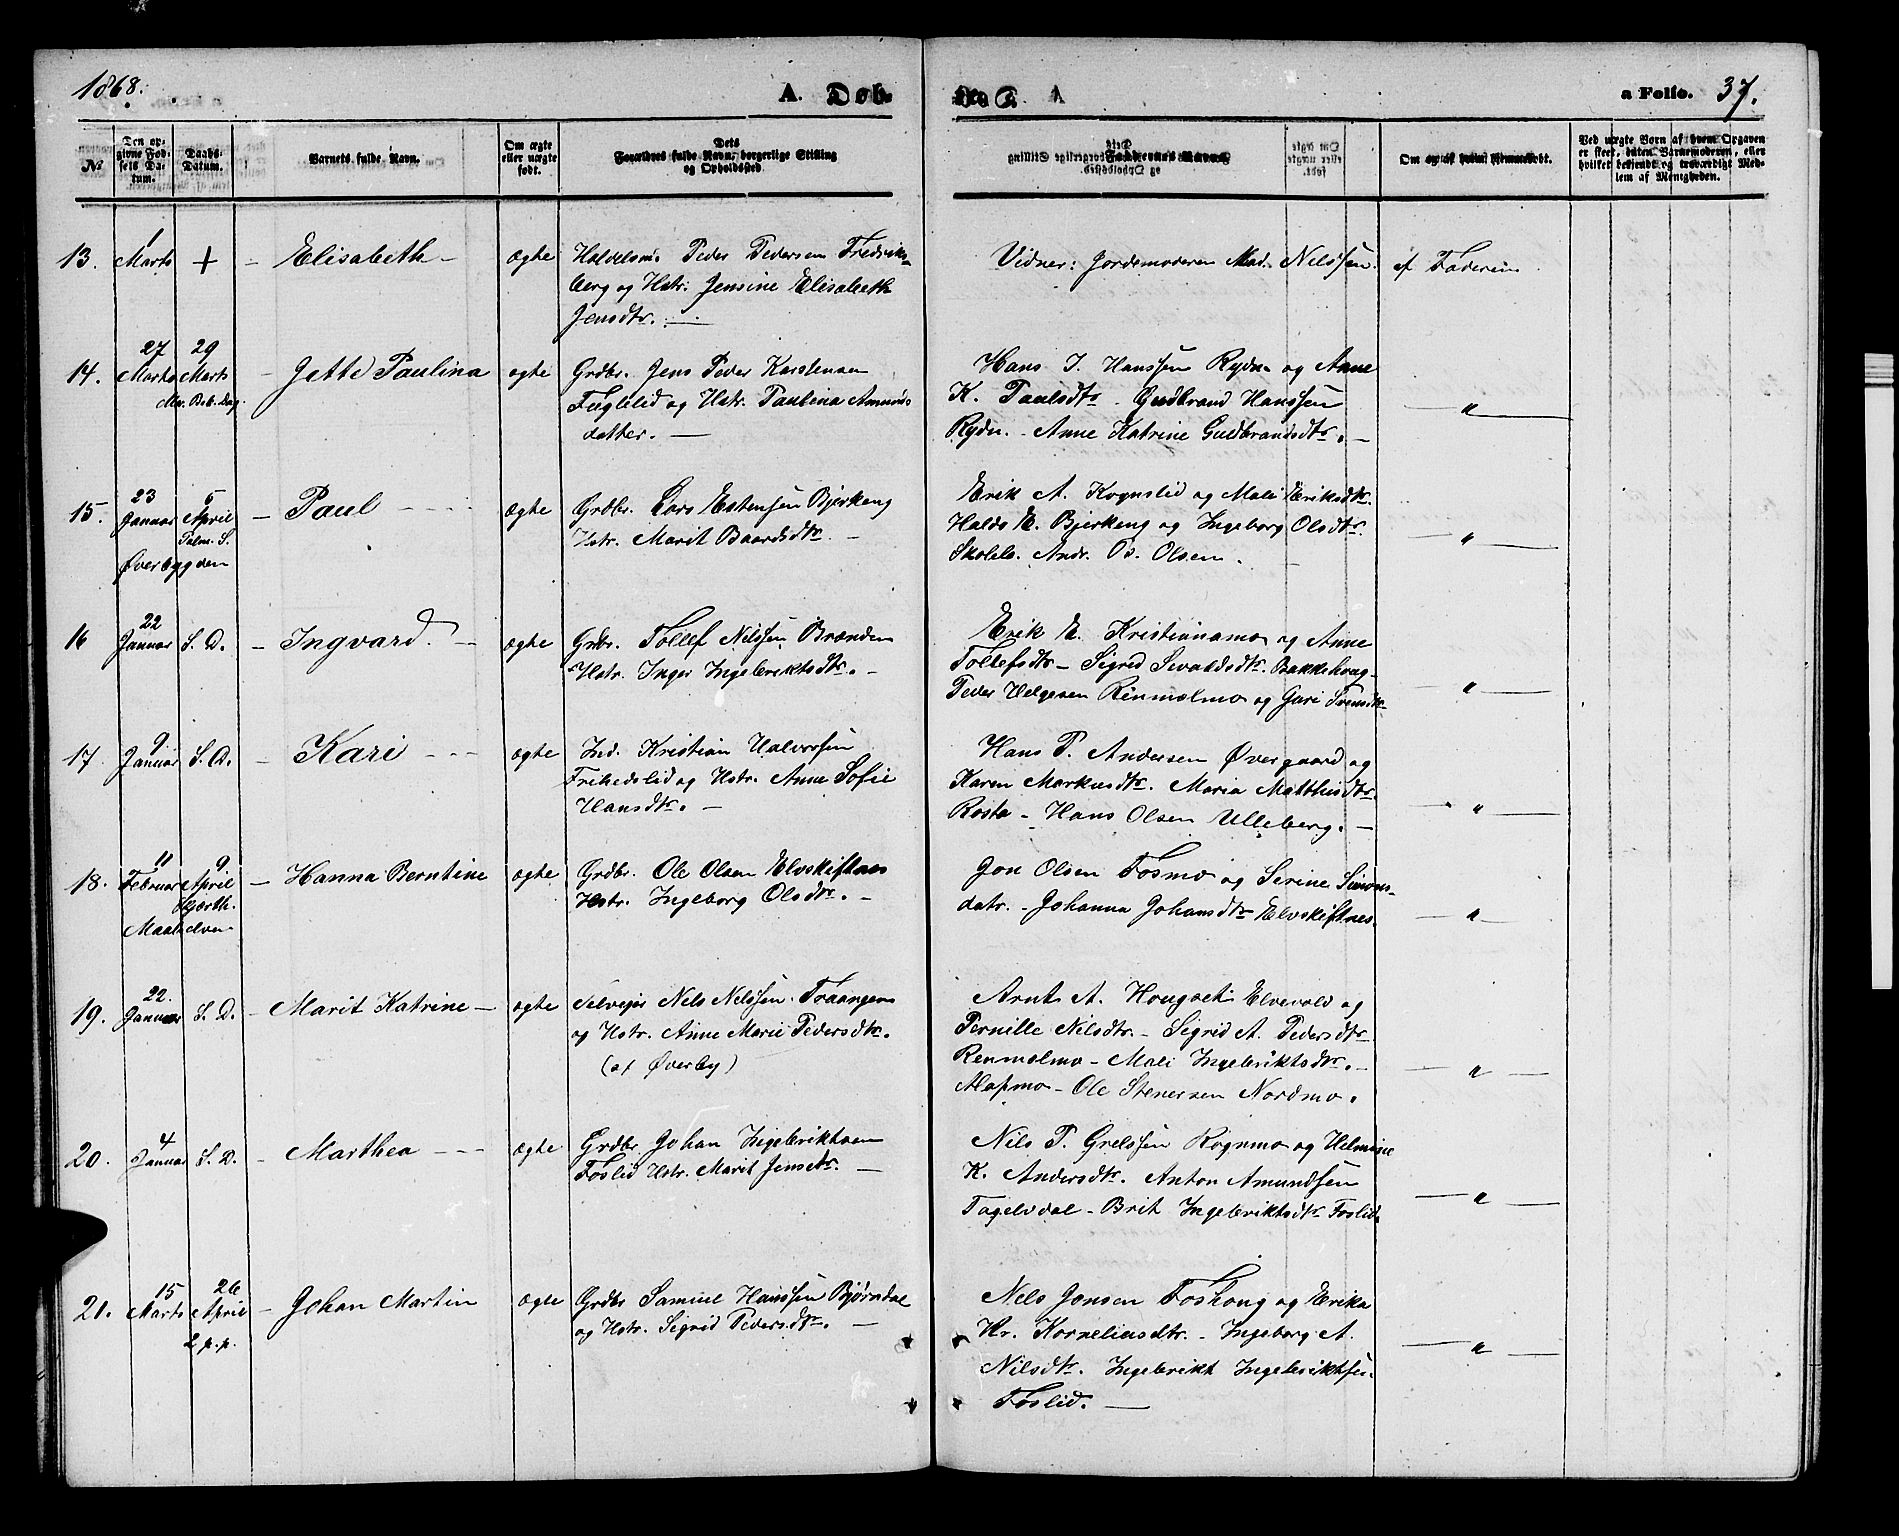 1868.
A. Døb-
a Folio. 37.
No
Den opgivne Fødsels Datum.
Daabs-Datum.
Barnets fulde Navn.
Om ægte eller uægte født.
Dets Forældres fulde Navn, borgerlige Stilling og Opholdssted.
Faddernes Navne
Om og af hvem hjemmedøbt.
Ved uægte Børn af hvem Opgaven er skeet, uden Barnemoderen, eller hvilket bekjendt og troværdigt Medlem af Menigheden.
13. 1 Marts + – Elisabeth – ægte
Peder Pedersen Fredriks-
berg og Hstr. Jensine Elisabeth
Jensdtr. —
Vidner: Jordemoderen Mad. Nilssen.
af Faderen
14. 27 Marts 29 Marts – Jette Paulina ægte
Grdbr. Jens Peder Karstensen
Fuglelid og Hstr. Paulina Amuns-
datter. —
Hans J. Hanssen Rydn. og Anne
K. Paulsdtr. Gudbrand Hanssen
Rydn. – Anne Katrine Guldbrandsdtr. –
— " —
15. 23 Januar 5 April Palm. S. – Paul ægte
Øverbygden
Grdbr. Lars Estensen Bjerkeng
Hstr. Marit Baardsdtr. –
Erik A. Kognslid og Mali Eriksdtr.
Haldo E. Bjerkeng og Ingeborg Olsdtr.
Skolel. Andr. O. Olsen.
— " —
16 22 Januar S. D. – Ingvard. ægte
Grbr. Tollef Nilssen Brænden
Hstr. Inger Ingebriktsdtr. –
Erik E. Kristianamo og Anne
Tollefsdtr – Sigrid Sivaldsdtr. Bakkehoug –
Peder Helgesen Rénmælmo og Guri Svensdtr
— " —
17. 9 Januar S. D. – Kari ægte
Ind. Kristian Halvorsen
Frihedslid og Hstr. Anne Sofie
Hansdtr. –
Hans P. Andersen Øvergaard og
Karen Markusdtr. Maria Matthisdtr.
Rosta – Hans Olsen Ulleberg. –
— " —
18. 11 Februar 9 April Skjærth. – Hanna Berntine ægte
Maalselven
Grdbr. Ole Olsen Elvskiftnes
Hstr. Ingeborg Olsdtr. –
Jon Olsen Fosmo og Serine Simons-
datr. – Johanna Johansdtr Elvskiftnes.
— " —
19. 22. Januar S. D. – Marit Katrine – ægte
Selveier Nils Nilssen Traangen
og Hstr. Anne Marie Pedersdtr.
(af Øverby)
Arnt A. Hougset Elvevold og
Pernille Nilsdtr. – Sigrid A. Pedersdtr
Renmælmo – Mali Ingebriktsdtr. –
Alapmo – Ole Stenersen Nordmo.
— " —
20. 4 Januar S. D. – Marthea ægte
Grdbr Johan Ingebriktsen
Foslid Hstr. Marit Jensdtr. —
Nils P. Grelssen Rognmo og Helmine
K. Andersdtr. Anton Amundsen
Fagelvdal – Brit Ingebriktsdtr Foslid.
— " —
21. 15 Marts 26 April 2 p. p. – Johan Martin ægte
Grdbr Samuel Hanssen Bjørndal
og Hstr. Sigrid Pedersdtr. —
Nils Jensen Foshoug og Erika
Kr. Korneliusdtr. – Ingeborg A.
Nilsdtr. Ingebrikt Ingebriktsen
Foslid. —
— " —